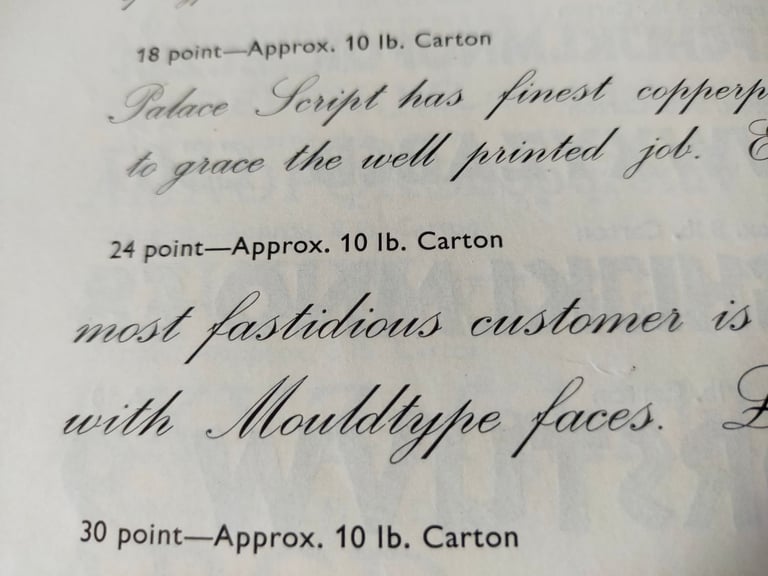 18 point—Approx. 10 lb. Carton
Palace Script has finest
to grace the well printed job.
24 point—Approx. 10 lb. Carton
most fastidious customer is
with Mouldtype faces.
30 point—Approx. 10 lb. Carton